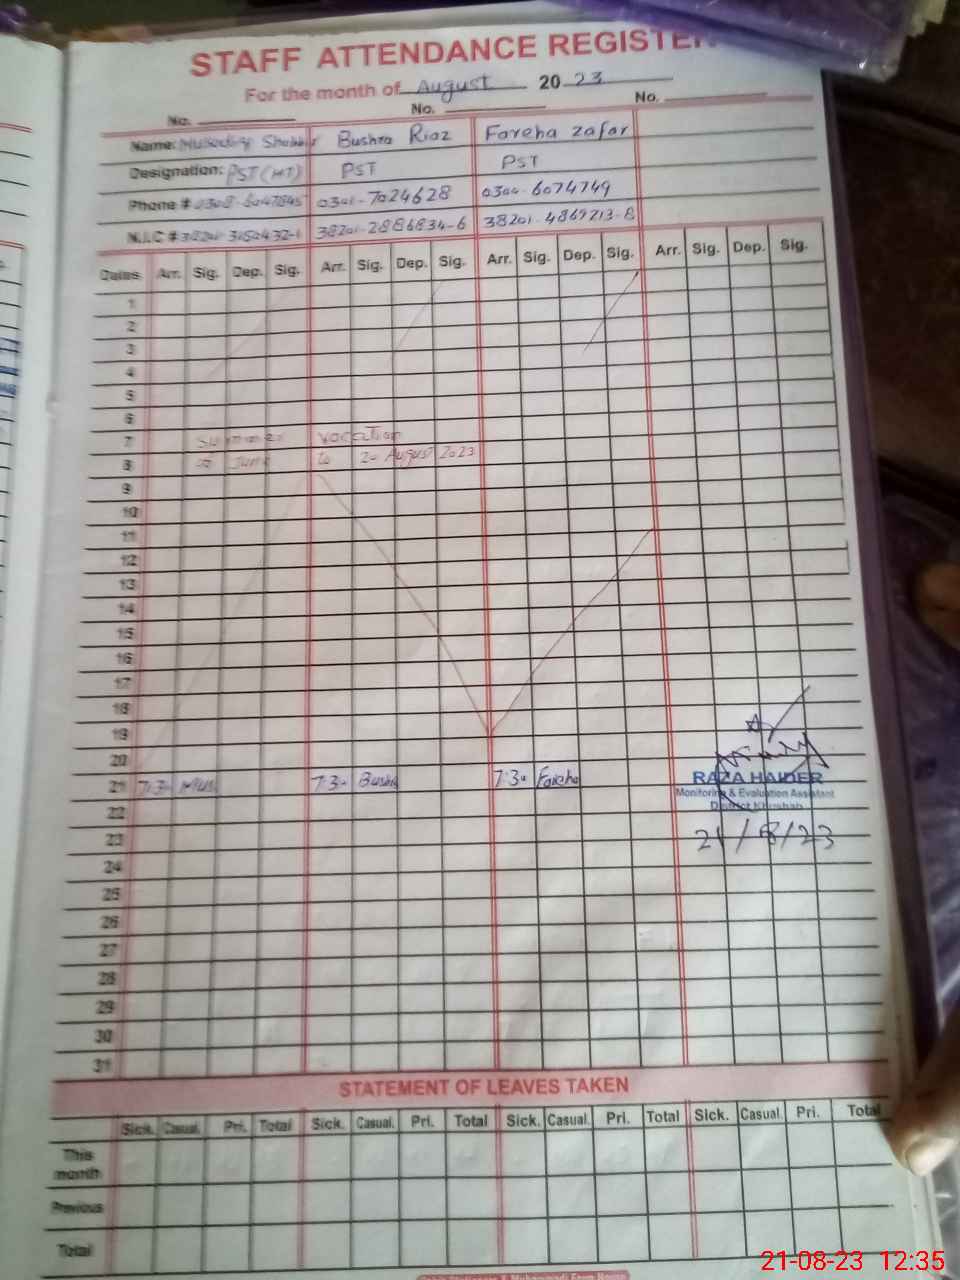 STAFF ATTENDANCE REGISTER
For the month of August 2023
No. No. No.
Name: Bushra Riaz Fareha zafar
Designation: PST (HT) PST PST
Phone # 0341-7024628 0344-6074749
N.I.C # 38201-2886834-6 38201-4869213-8
Dates Arr. Sig. Dep. Sig. Arr. Sig. Dep. Sig. Arr. Sig. Dep. Sig. Arr. Sig. Dep. Sig.
1
2
3
4
5
6
7 Summer vacation
8 June to 20 August 2023
9
10
11
12
13
14
15
16
17
18
19
20
21 7:30 Mus 7:30 Bushra 7:30 Fareha
RAZA HAIDER
Monitoring & Evaluation Assistant
District Khushab
22
21/8/23
23
24
25
26
27
28
29
30
31
STATEMENT OF LEAVES TAKEN
Sick. Casual. Pri. Total Sick. Casual. Pri. Total Sick. Casual. Pri. Total Sick. Casual. Pri. Total
This
month
Previous
Total
21-08-23 12:35